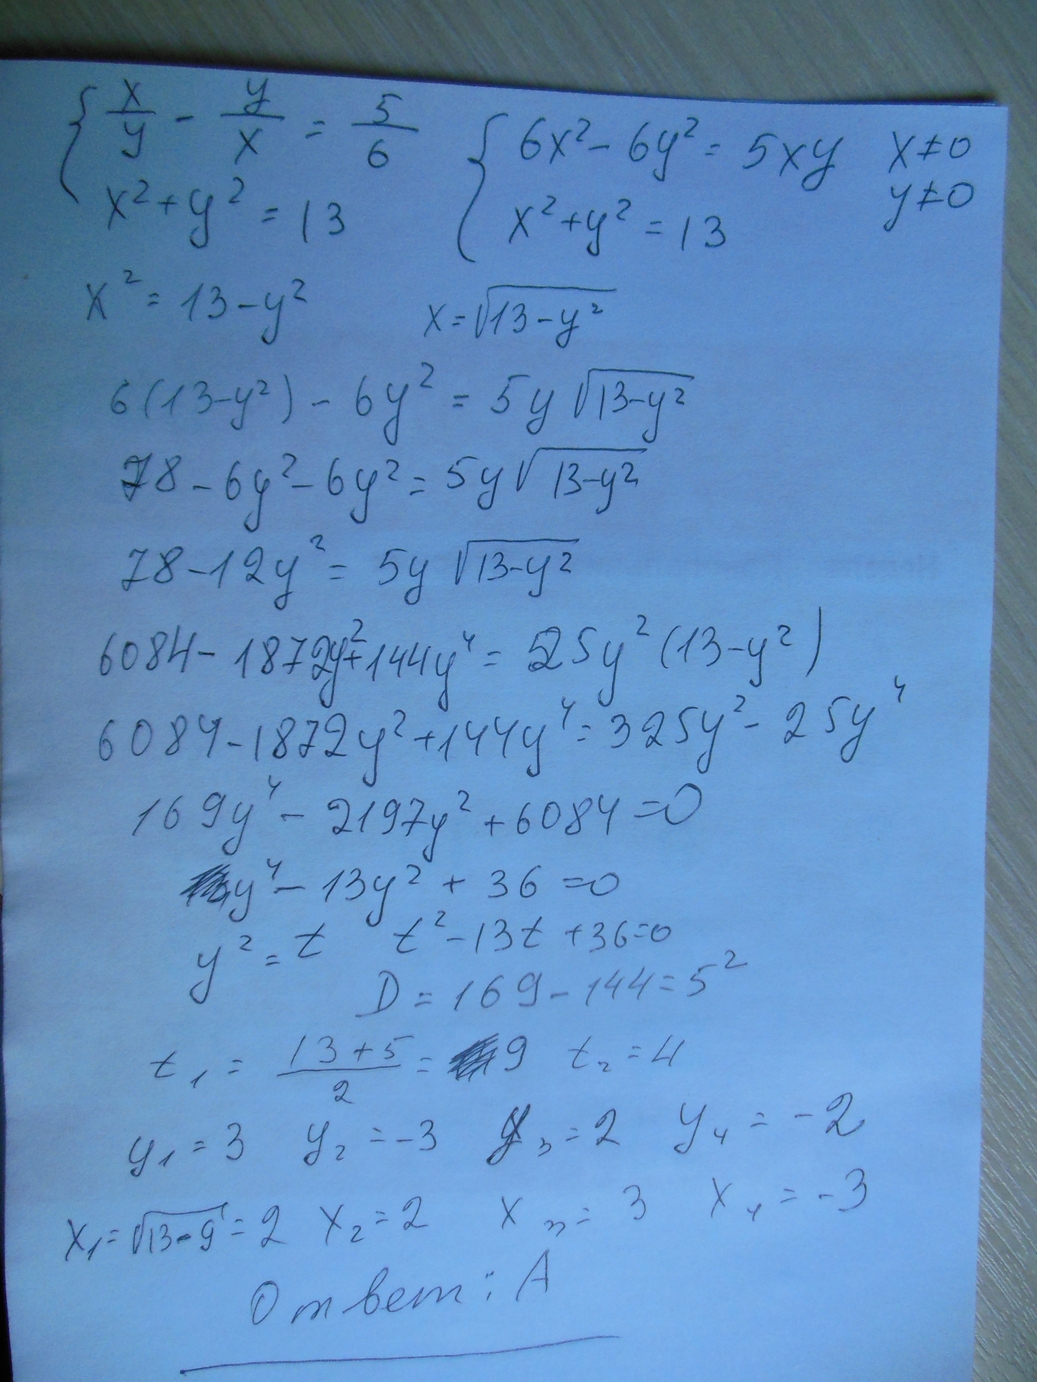 { x/y - y/x = 5/6
x² + y² = 13
{ 6x² - 6y² = 5xy x ≠ 0
x² + y² = 13 y ≠ 0
x² = 13 - y² x = √(13 - y²)
6(13 - y²) - 6y² = 5y √(13 - y²)
78 - 6y² - 6y² = 5y √(13 - y²)
78 - 12y² = 5y √(13 - y²)
6084 - 1872y² + 144y⁴ = 25y² (13 - y²)
6084 - 1872y² + 144y⁴ = 325y² - 25y⁴
169y⁴ - 2197y² + 6084 = 0
y⁴ - 13y² + 36 = 0
y² = t t² - 13t + 36 = 0
D = 169 - 144 = 5²
t₁ = (13 + 5)/2 = 9 t₂ = 4
y₁ = 3 y₂ = -3 y₃ = 2 y₄ = -2
x₁ = √(13 - 9) = 2 x₂ = 2 x₃ = 3 x₄ = -3
Ответ: А